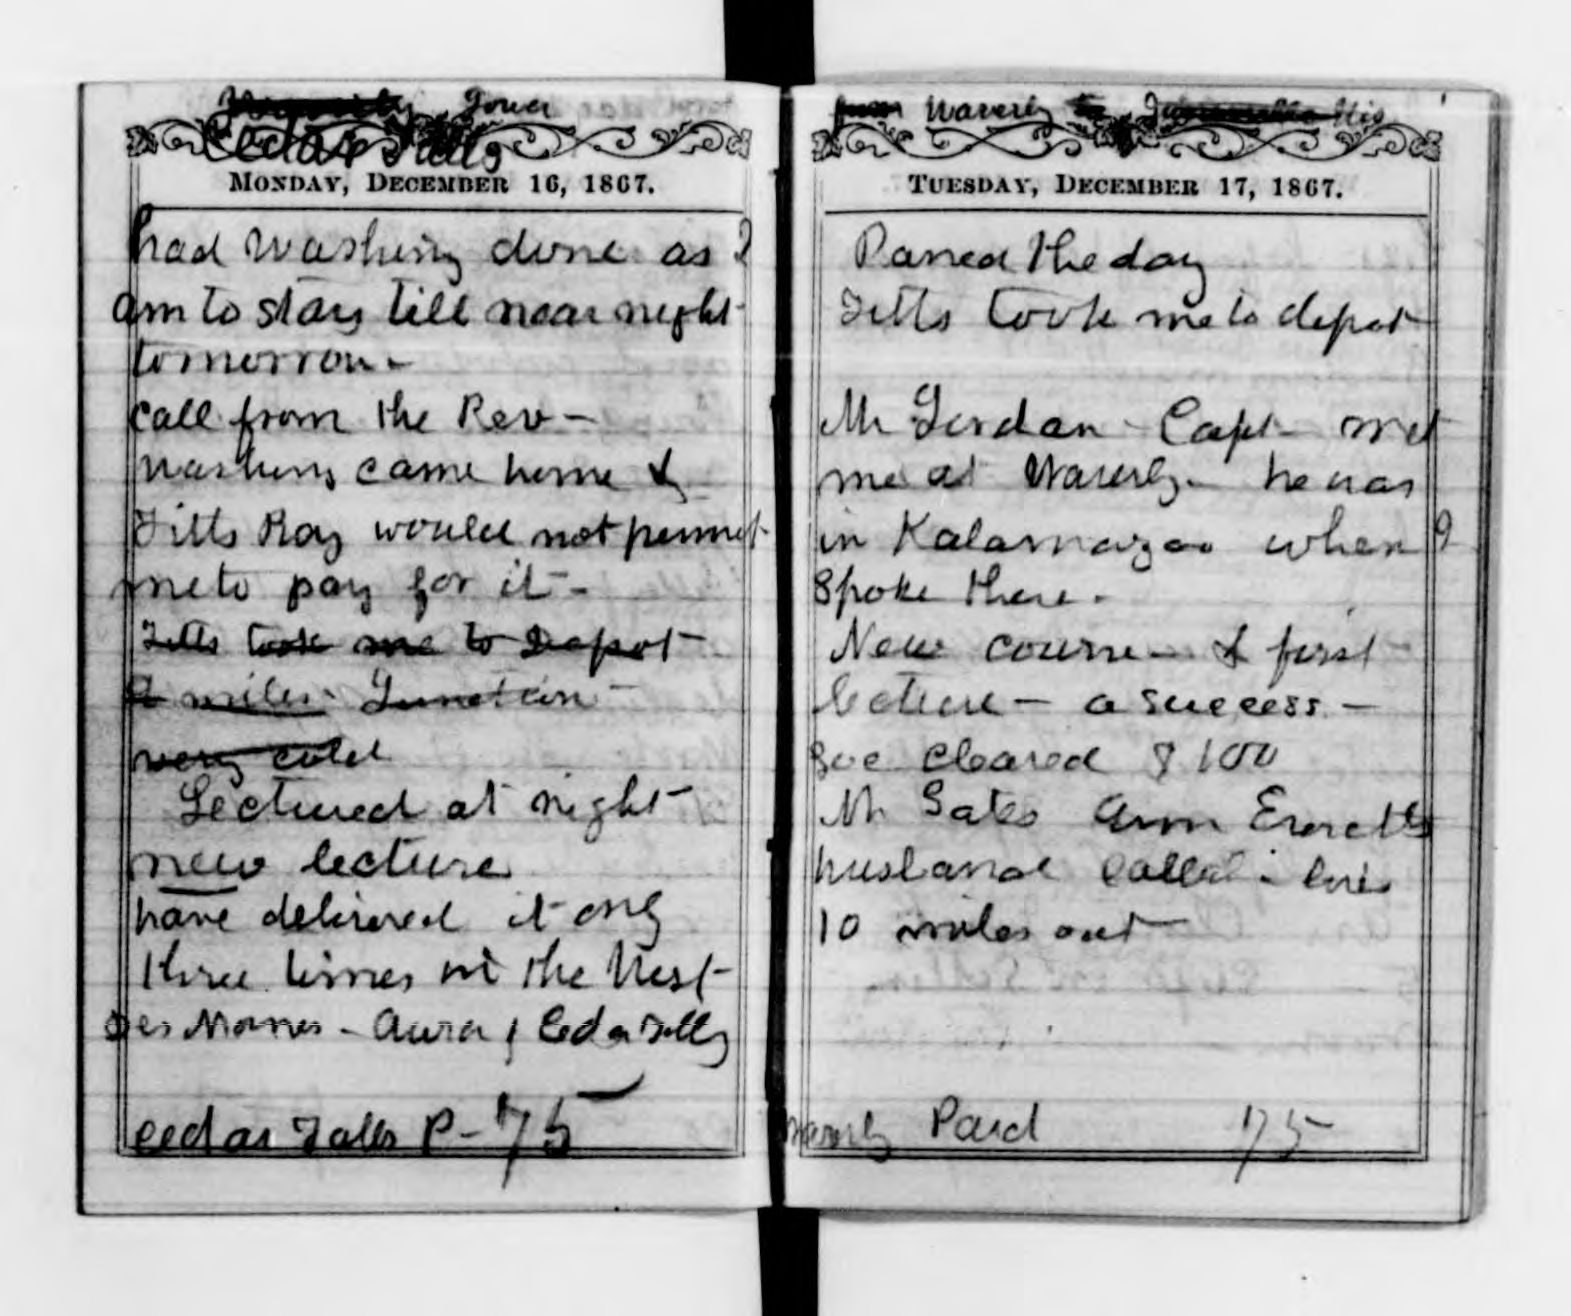 Iowa
Cedar Falls
MONDAY, DECEMBER 16, 1867.
had washing done as I
am to stay till near night
tomorrow -
call from the Rev -
washing came home &
Fitts Ray would not permit
me to pay for it -
Fitts took me to Depot
miles - Junction -
very cold
Lectured at night
new lecture
have delivered it only
three times in the West -
Des Moines - Auror & Cedar Falls
cedar Falls P - 75
from Waverly to
TUESDAY, DECEMBER 17, 1867.
Passed the day
Fitts took me to depot
Mr Jordan - Capt - met
me at Waverly - he was
in Kalamazoo when I
spoke there -
New course - & first
lecture - a success -
Soc cleared $100
Mr Gates Ann Everetts
husband called - lives
10 miles out
Waverly Paid 75